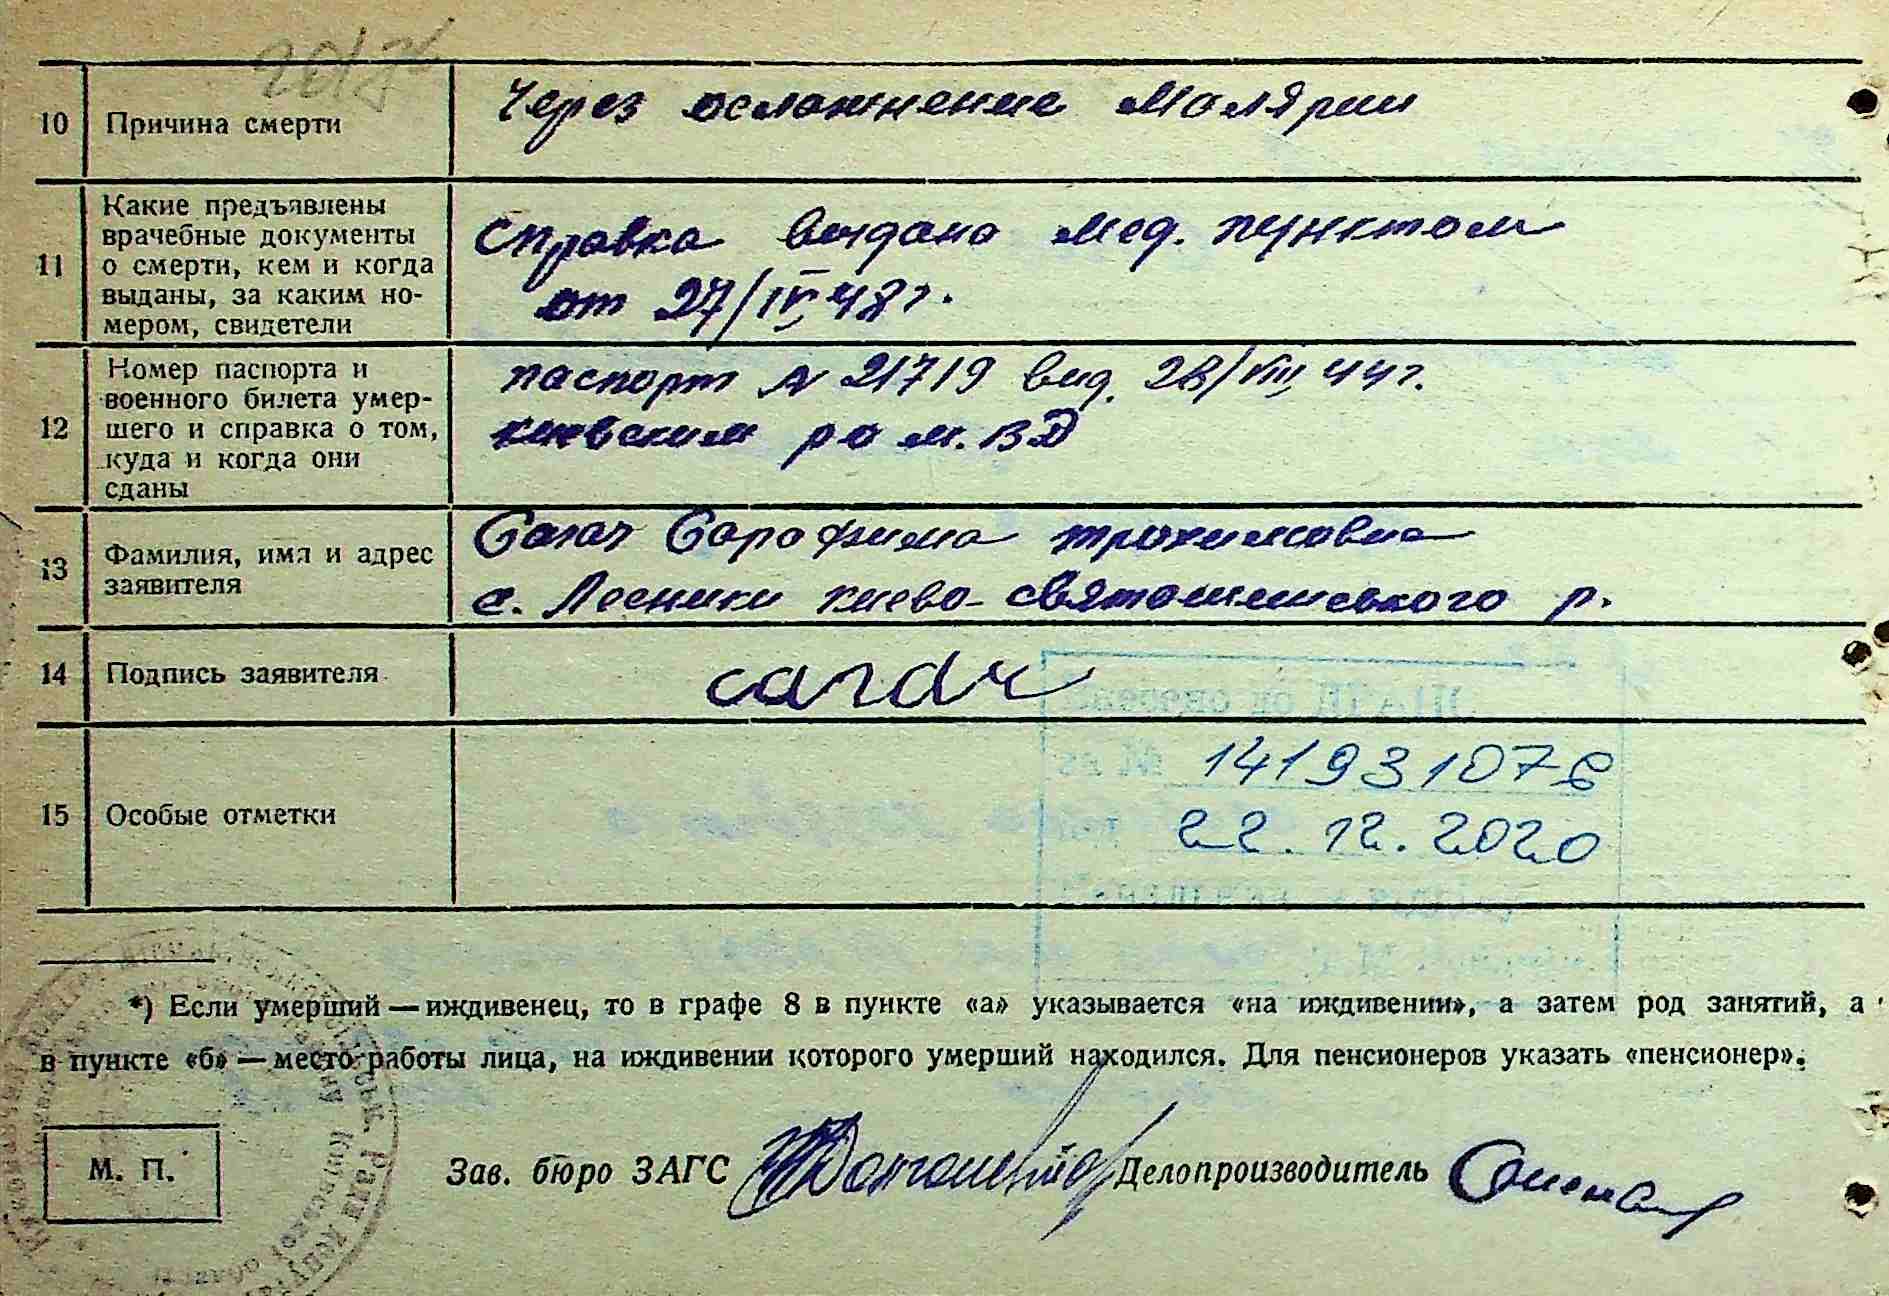 10 Причина смерти
Через осложнение Малярии
11 Какие предъявлены
врачебные документы
о смерти, кем и когда
выданы, за каким но-
мером, свидетели
Справка выдана мед. пунктом
от 27/IV 48 г.
12 Номер паспорта и
военного билета умер-
шего и справка о том,
куда и когда они
сданы
паспорт № 21719 вид. 28/VIII 44 г.
киевским ро м.ВД
13 Фамилия, имя и адрес
заявителя
Сагач Сарофима трохимовна
с. Лесники киево-святошинського р.
14 Подпись заявителя
сагач
15 Особые отметки
14193107
22.12.2020
*) Если умерший — иждивенец, то в графе 8 в пункте «а» указывается «на иждивении», а затем род занятий, а
в пункте «б» — место работы лица, на иждивении которого умерший находился. Для пенсионеров указать «пенсионер».
М. П.
Зав. бюро ЗАГС
Делопроизводитель